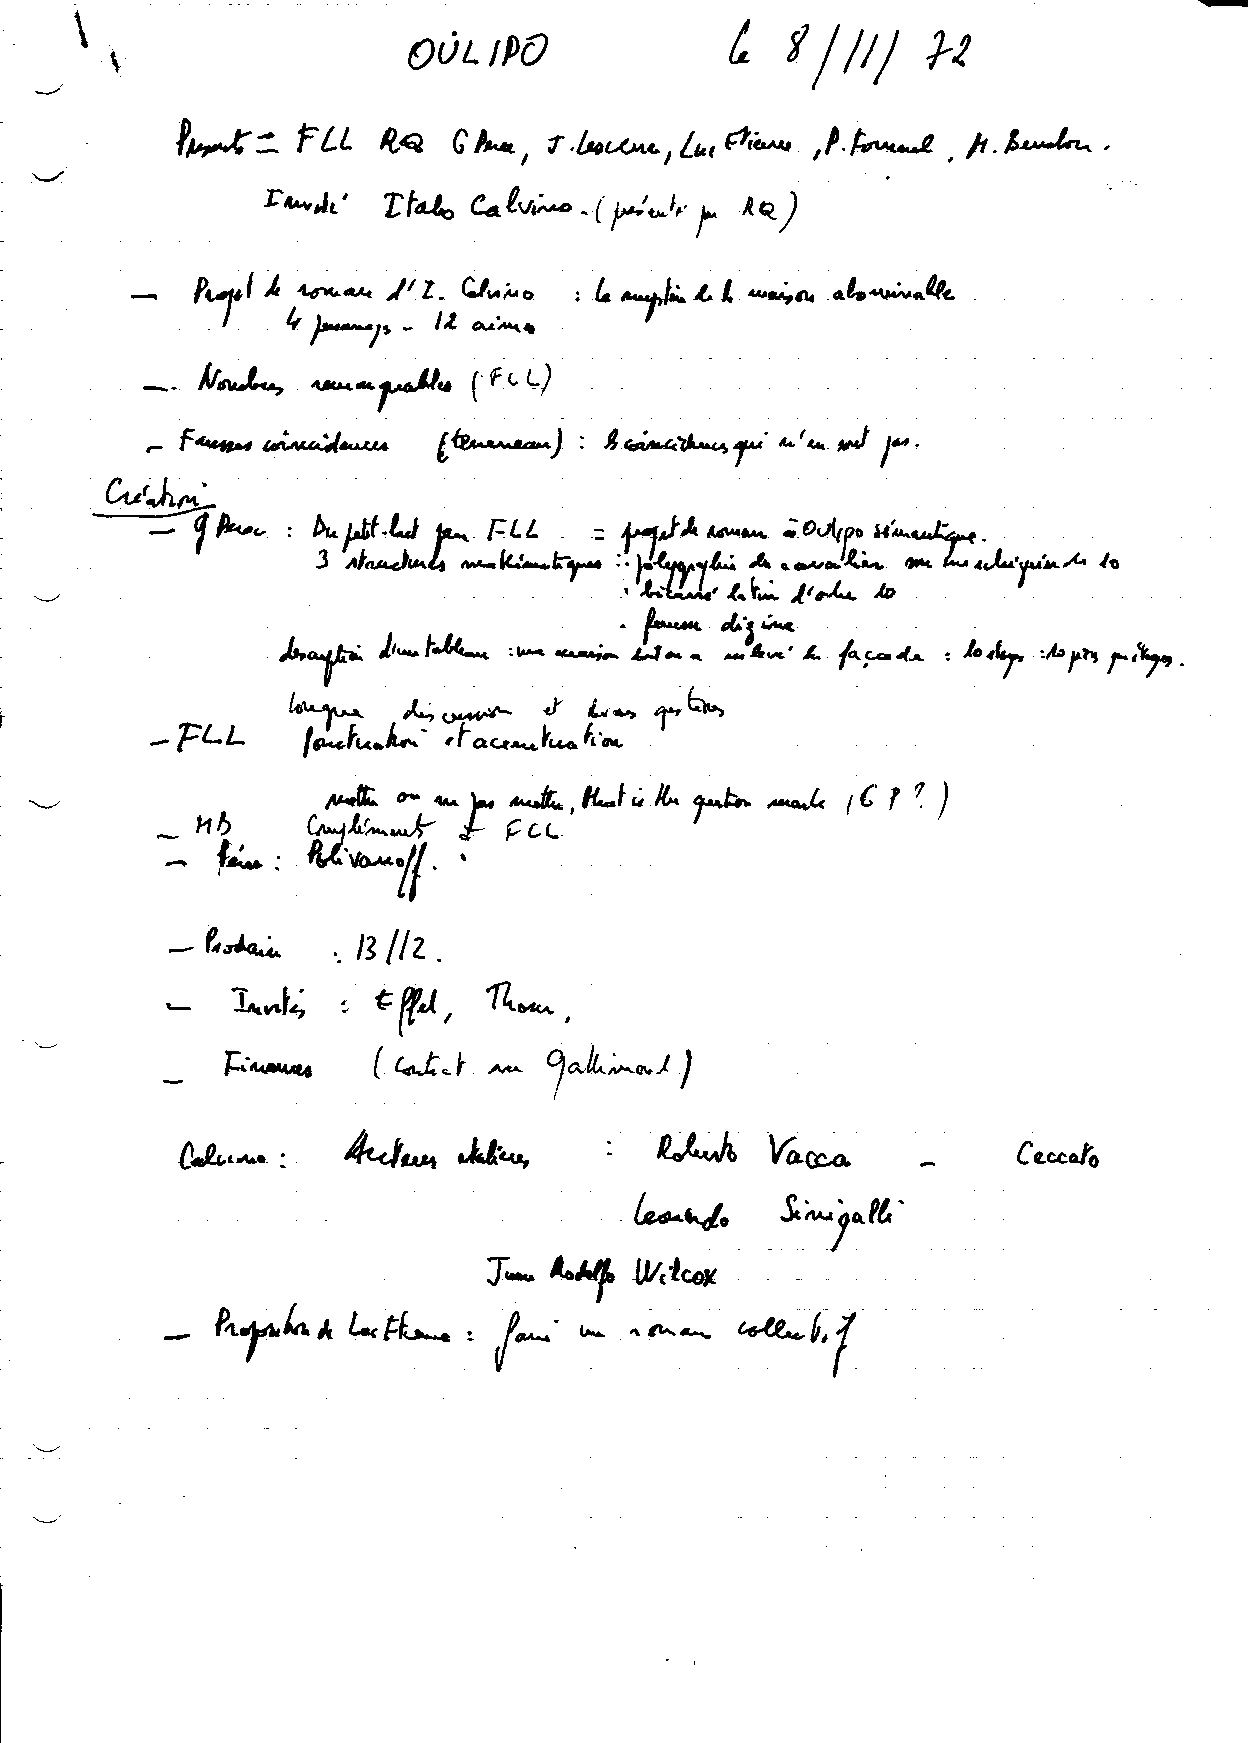 OULIPO le 8/11/72
Présents = FLL RQ G Perec, J. Lescure, Luc Etienne, P. Fournel, M. Benabou.
Invité Italo Calvino - (présenté par RQ)
— Projet de roman d'I. Calvino : la de la maison abominable
4 personnages - 12 crimes
— Nombres remarquables (FLL)
— Fausses coincidences : les coincidences qui n'en sont pas.
Création
— G Perec : Du petit-lait pour FLL = projet de roman à Oulipo sémantique.
3 structures mathématiques : . polygraphie du cavalier sur un échiquier de 10
. bicarré latin d'ordre 10
. fausse dizine
description d'un tableau : une maison dont on a enlevé la façade : 10 étages : 10 privilèges.
longue discussion et divas questions
— FLL ponctuation et accentuation
mettre ou ne pas mettre, that is the question mark (G P ?)
— MB Compléments à FLL
— : Polivanoff.
— Prochain : 13/12.
— Invités : Effel, Thom,
— Finances (contrat Gallimard)
Calvino : Auteurs italiens : Roberto Vacca — Ceccato
Leonardo Sinigalli
Juan Rodolfo Wilcox
— Proposition de Luc Etienne : faire un roman collectif